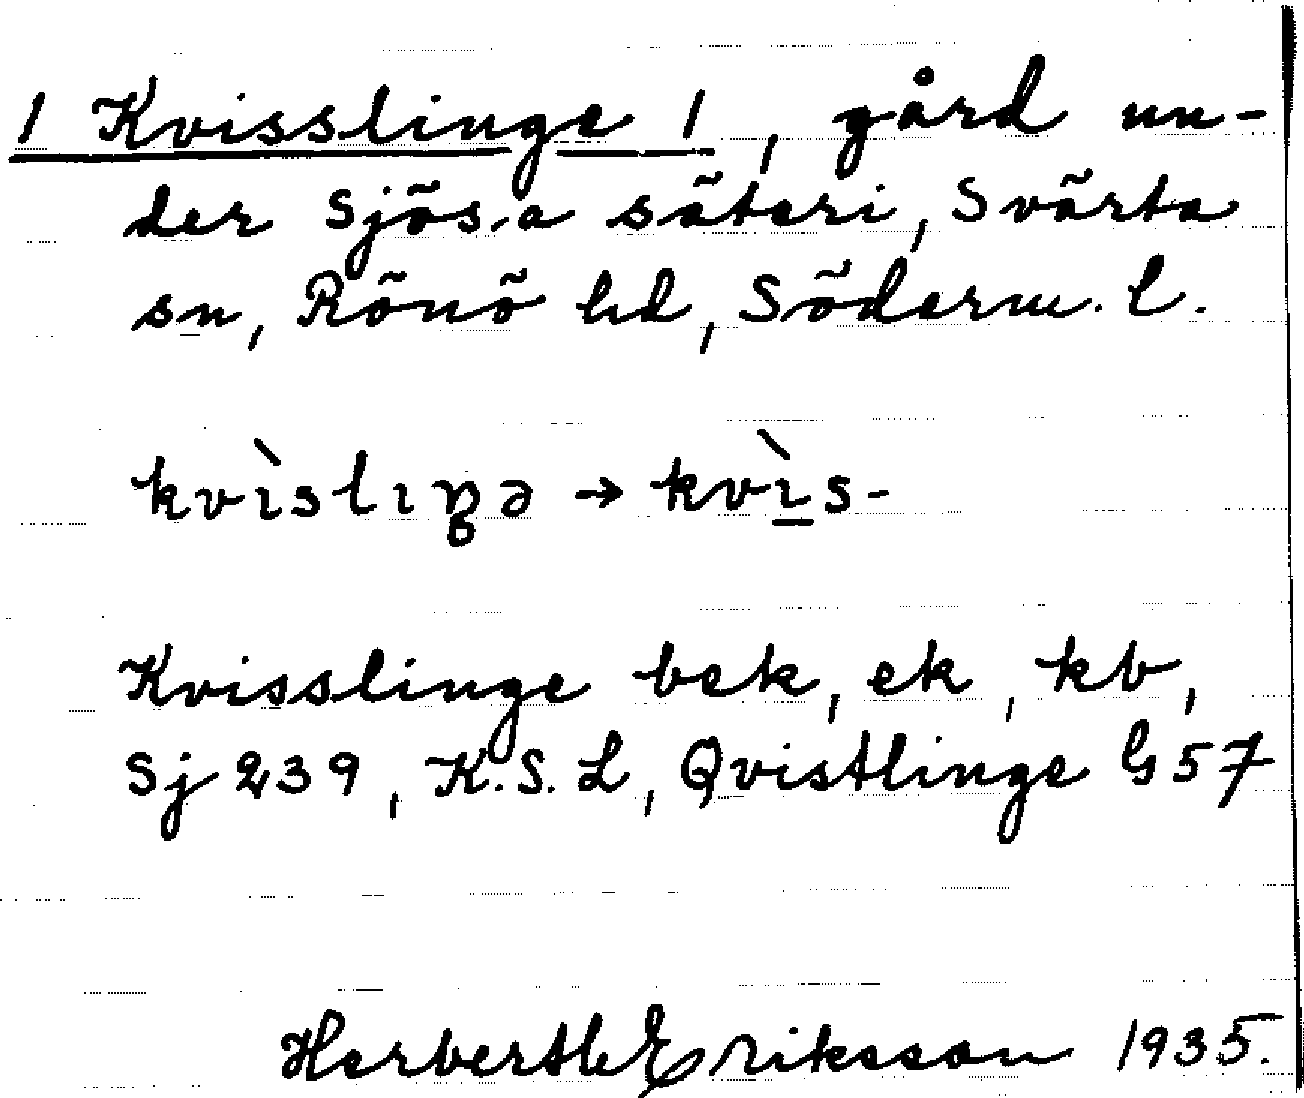 / Kvisslinge /, gård un-
der Sjösa säteri, Svärta
sn, Rönö hd, Söderm. l.
kvìslıŋə → kvı̲̀s-
Kvisslinge bek, ek, kb,
Sj 239, K.S.L, Qvistlinge G 57
Herbert Eriksson 1935.